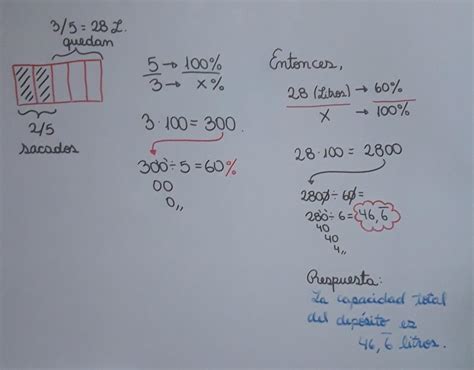 3/5 = 28 L.
quedan
2/5
sacados
5 → 100%
3 → x%
3·100 = 300.
300÷5 = 60%
00
0,,
Entonces,
28 (Litros) → 60%
x → 100%
28·100 = 2800
2800÷60=
280÷6= 46,6̅
40
40
4,,
Respuesta:
La capacidad total
del depósito es
46,6̅ litros.